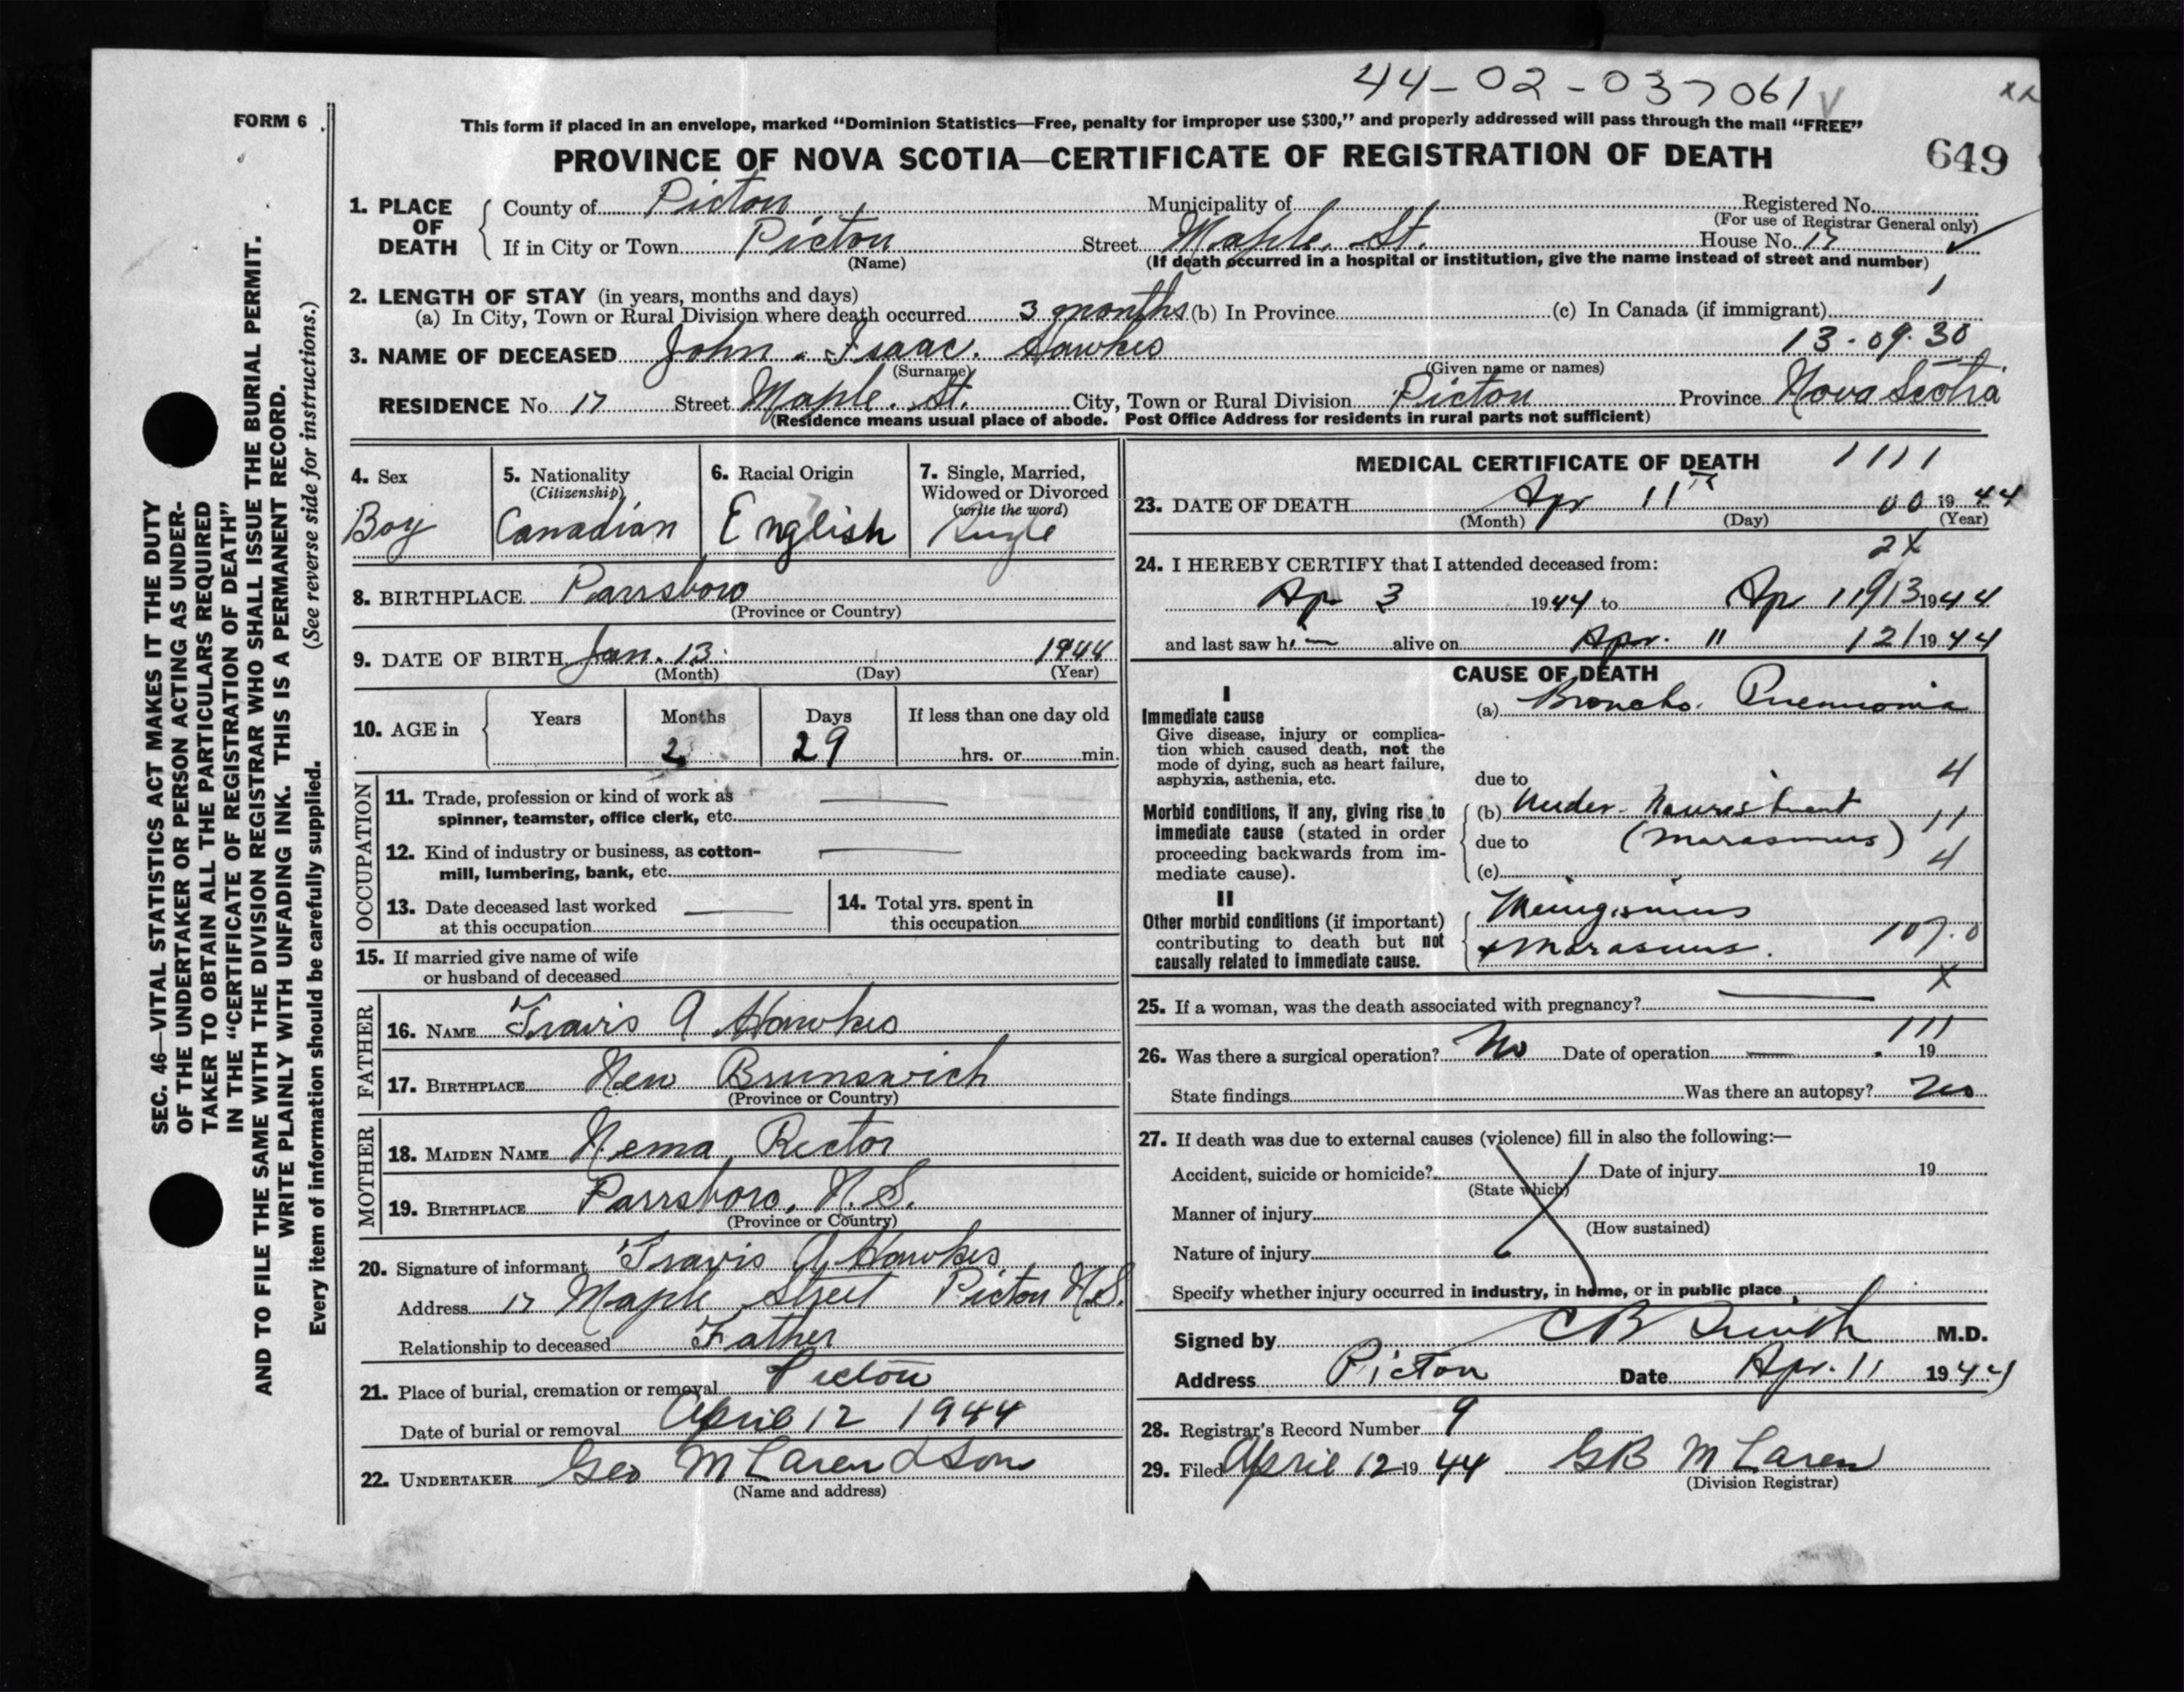 44-02-037061 V
FORM 6
This form if placed in an envelope, marked "Dominion Statistics—Free, penalty for improper use $300," and properly addressed will pass through the mail "FREE"
PROVINCE OF NOVA SCOTIA—CERTIFICATE OF REGISTRATION OF DEATH
649
SEC. 46—VITAL STATISTICS ACT MAKES IT THE DUTY
OF THE UNDERTAKER OR PERSON ACTING AS UNDER-
TAKER TO OBTAIN ALL THE PARTICULARS REQUIRED
IN THE "CERTIFICATE OF REGISTRATION OF DEATH"
AND TO FILE THE SAME WITH THE DIVISION REGISTRAR WHO SHALL ISSUE THE BURIAL PERMIT.
WRITE PLAINLY WITH UNFADING INK. THIS IS A PERMANENT RECORD.
Every item of information should be carefully supplied. (See reverse side for instructions.)
1. PLACE OF DEATH
County of Picton Municipality of Registered No.
(For use of Registrar General only)
If in City or Town Picton Street Maple St. House No. 17
(Name) (If death occurred in a hospital or institution, give the name instead of street and number)
2. LENGTH OF STAY (in years, months and days) 1
(a) In City, Town or Rural Division where death occurred 3 months (b) In Province (c) In Canada (if immigrant)
13-09-30
3. NAME OF DECEASED John Isaac Hawkes
(Surname) (Given name or names)
RESIDENCE No 17 Street Maple. St. City, Town or Rural Division Picton Province Nova Scotia
(Residence means usual place of abode. Post Office Address for residents in rural parts not sufficient)
4. Sex
Boy
5. Nationality
(Citizenship)
Canadian
6. Racial Origin
English
7. Single, Married,
Widowed or Divorced
(write the word)
Single
8. BIRTHPLACE Parrsboro
(Province or Country)
9. DATE OF BIRTH Jan. 13 1944
(Month) (Day) (Year)
10. AGE in
Years Months Days If less than one day old
2 29 hrs. or min.
OCCUPATION
11. Trade, profession or kind of work as
spinner, teamster, office clerk, etc.
12. Kind of industry or business, as cotton-
mill, lumbering, bank, etc.
13. Date deceased last worked
at this occupation
14. Total yrs. spent in
this occupation
15. If married give name of wife
or husband of deceased
FATHER
16. NAME Travis A Hawkes
17. BIRTHPLACE New Brunswich
(Province or Country)
MOTHER
18. MAIDEN NAME Nema Rector
19. BIRTHPLACE Parrsboro, N.S.
(Province or Country)
20. Signature of informant Travis A Hawkes
Address 17 Maple Street Picton N.S.
Relationship to deceased Father
21. Place of burial, cremation or removal Pictou
Date of burial or removal April 12 1944
22. UNDERTAKER Geo McLaren & Son
(Name and address)
MEDICAL CERTIFICATE OF DEATH 1111
23. DATE OF DEATH Apr 11th 00 1944
(Month) (Day) (Year)
2X
24. I HEREBY CERTIFY that I attended deceased from:
Ap 3 1944 to Ap 11 1944
and last saw him alive on Apr. 11 121 1944
CAUSE OF DEATH
I
Immediate cause
Give disease, injury or complica-
tion which caused death, not the
mode of dying, such as heart failure,
asphyxia, asthenia, etc.
(a) Broncho. Pneumonia
due to 4
Morbid conditions, if any, giving rise to
immediate cause (stated in order
proceeding backwards from im-
mediate cause).
(b) Under-Nourishment 11
due to (Marasmus)
(c) 4
II
Other morbid conditions (if important)
contributing to death but not
causally related to immediate cause.
Meningismus
+ Marasmus. 107.0
X
25. If a woman, was the death associated with pregnancy?
111
26. Was there a surgical operation? No Date of operation 19
State findings Was there an autopsy? No
27. If death was due to external causes (violence) fill in also the following:—
Accident, suicide or homicide? Date of injury 19
(State which)
Manner of injury
(How sustained)
Nature of injury
Specify whether injury occurred in industry, in home, or in public place
Signed by C B Smith M.D.
Address Picton Date Apr. 11 1944
28. Registrar's Record Number 9
29. Filed April 12 1944 GB McLaren
(Division Registrar)